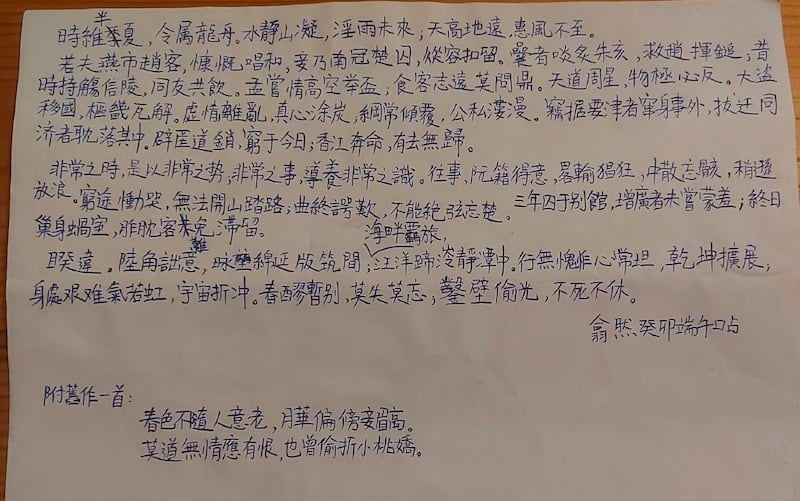 半
時維季夏，令属龍舟。水靜山凝，淫雨未來；天高地遠，惠風不至。
若夫燕市趙客，慷慨唱和，妾乃南冠楚囚，從容扣留。饗者啖炙朱亥，救趙揮鎚；昔
時持觴信陵，同友共飲。孟嘗情高空举盃；食客志遠莫問鼎。天道周星，物極必反。大盗
移國，樞 瓦解。虛情離亂，真心涂炭，綱常傾覆，公私漊漫。竊据要津者窜身事外，扙迁同
济者耽落其中。辟匡道銷，窮于今日；香江奔命，有去無歸。
非常之時，是以非常之势；非常之事，導養非常之識。往事，阮籍得意，畧輸猖狂，中散忘骸，稍遜
放浪。窮途慟哭，無法開山踏路；曲終諤歎，不能絶弦忘楚。三年囚于别館，增廣者未嘗蒙羞；終日
巢身蝸室，胙肬客 免滞留。
難 海畔羈旅，
暌違。陸角詘意，脉 綿延版筑間；汪洋蹄涔靜潭中。行無愧怍心常坦，乾坤擴展；
身處艰难氣若虹，宇宙折冲。春醪暫别，莫失莫忘；鑿壁偷光，不死不休。
翕然癸卯端午
附舊作一首：
春色不隨人意老，月華偏傍妾眉高。
莫道無情應有恨，也曾偷折小桃嬌。